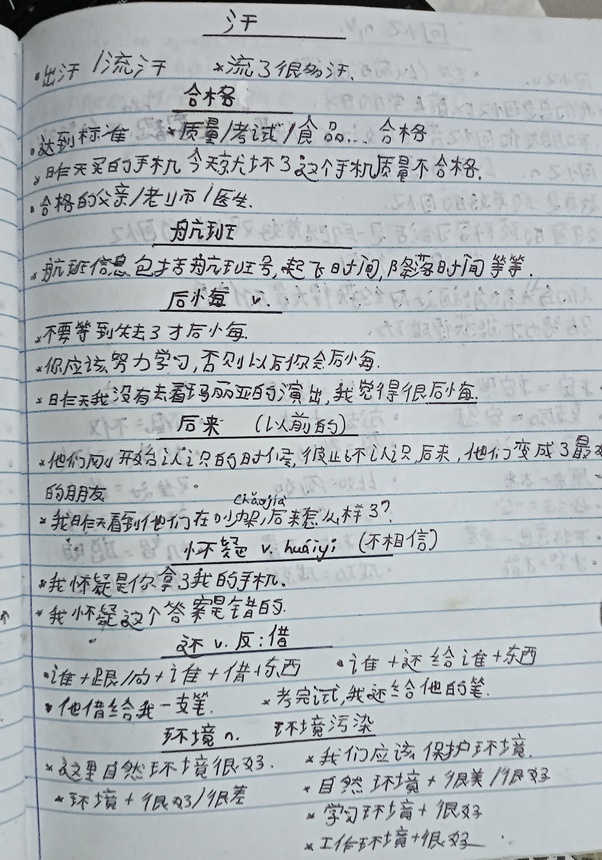 汗
•出汗 / 流汗 *流了很多汗.
合格
•达到标准 *质量/考试/食品... 合格
*昨天买的手机今天就坏了这个手机质量不合格.
•合格的父亲/老师/医生
航班
*航班信息包括航班号,起飞时间,降落时间等等.
后悔 v.
*不要等到失去了才后悔.
*你应该努力学习,否则以后你会后悔.
*昨天我没有去看玛丽亚的演出,我觉得很后悔.
后来 (以前的)
*他们刚开始认识的时候,彼此不认识,后来,他们变成了最好
的朋友
chǎojià
*我昨天看到他们在吵架,后来怎么样了?
怀疑 v. huáiyí (不相信)
*我怀疑是你拿了我的手机.
*我怀疑这个答案是错的.
还 v. 反:借
•谁+跟/向+谁+借+东西 •谁+还给谁+东西
•他借给我一支笔. *考完试,我还给他的笔.
环境 n. 环境污染
*这里自然环境很好. *我们应该保护环境.
*环境+很好/很差 *自然环境+很美/很好
*学习环境+很好
*工作环境+很好